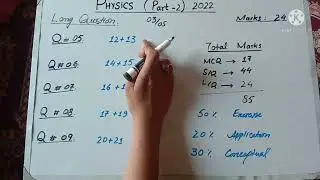 PHYSICS (Part-2) 2022
Long Question:
03/05
Marks: 24
Q # 05 12+13
Q # 06 14+15
Q # 07 16+
Q # 08 17+
Q # 09 20+21
Total Marks
MCQ → 17
S/Q → 44
L/Q → 24
85
50% Exercise
20% Application
30% Conceptual